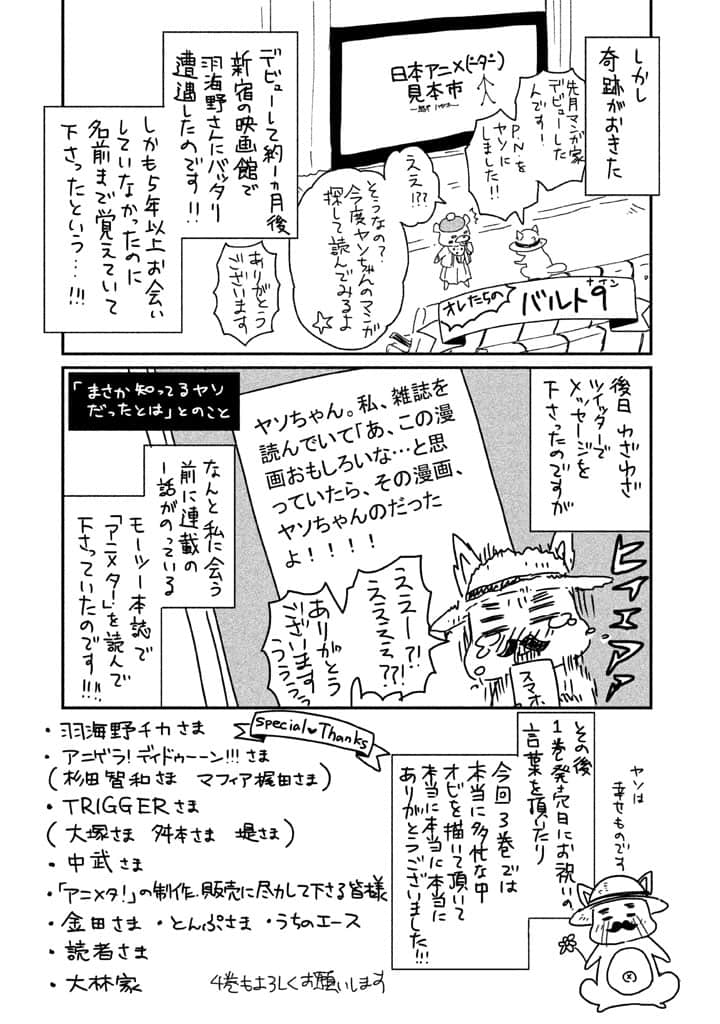 しかし
奇跡がおきた
日本アニメ(ーター)
見本市
先月マンガ家
デビューした
んです!
P.N.を
ヤソに
しました!!
ええ!??
そうなの?
今度ヤソちゃんのマンガ
探して読んでみるよ
ありがとう
ございます
オレたちの
バルト9
ナイン
デビューして約一ヵ月後
新宿の映画館で
羽海野さんにバッタリ
遭遇したのです!!
しかも5年以上お会い
していなかったのに
名前まで覚えていて
下さったという…!!!
後日わざわざ
ツイッターで
メッセージを
下さったのですが
ヤソちゃん。私、雑誌を
読んでいて「あ、この漫
画おもしろいな…と思
っていたら、その漫画、
ヤソちゃんのだった
よ!!!!
「まさか知ってるヤソ
だったとは」とのこと
ヒィエアア
ええー?!
ええええ??!
ありがとう
ございます
うううう
スマホ
なんと私に会う
前に連載の
一話がのっている
モーツー本誌で
「アニメタ!」を読んで
下さっていたのです!!!
その後
1巻発売日にお祝いの
言葉を頂いたり
今回3巻では
本当に多忙な中
オビを描いて頂いて
本当に本当に本当に
ありがとうございました!!!
ヤソは
幸せものです
Special♥Thanks
・羽海野チカさま
・アニゲラ!ディドゥーーン!!!さま
(杉田智和さま マフィア梶田さま)
・TRIGGERさま
(大塚さま 舛本さま 堤さま)
・中武さま
・「アニメタ!」の制作、販売に尽力して下さる皆様
・金田さま ・とんぷさま ・うちのエース
・読者さま
・大林家
4巻もよろしくお願いします